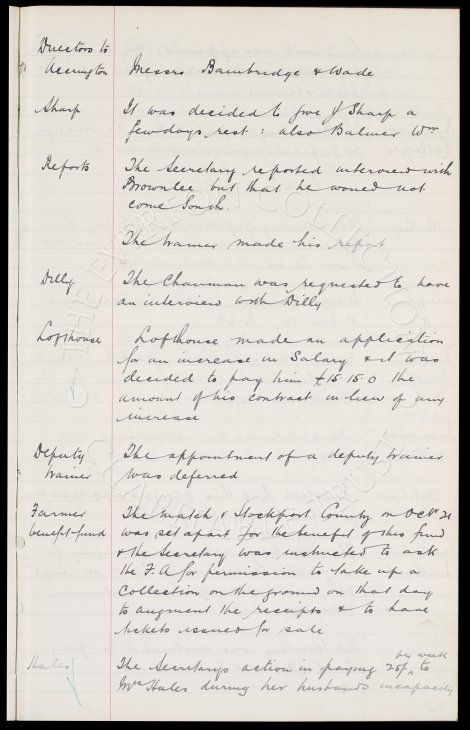 Directors to
Accrington Messrs Bainbridge & Wade
Sharp It was decided to give J Sharp a
few days rest : also Balmer Wm
Reports The Secretary reported interview with
Brownlee but that he would not
come South.
The trainer made his report
Dilly The Chairman was requested to have
an interview with Dilly
Lofthouse Lofthouse made an application
for an increase in Salary & it was
decided to pay him £15.15.0 the
amount of his contract in lieu of any
increase
Deputy The appointment of a deputy trainer
trainer was deferred
Farmer The match v Stockport County on Oct 21
benefit-fund was set apart for the benefit of this fund
& the Secretary was instructed to ask
the F.A for permission to take up a
collection on the ground on that day
to augment the receipts & to have
tickets issued for sale
Hales The Secretarys action in paying 25/- per week to
Mrs Hales during her husbands incapacity